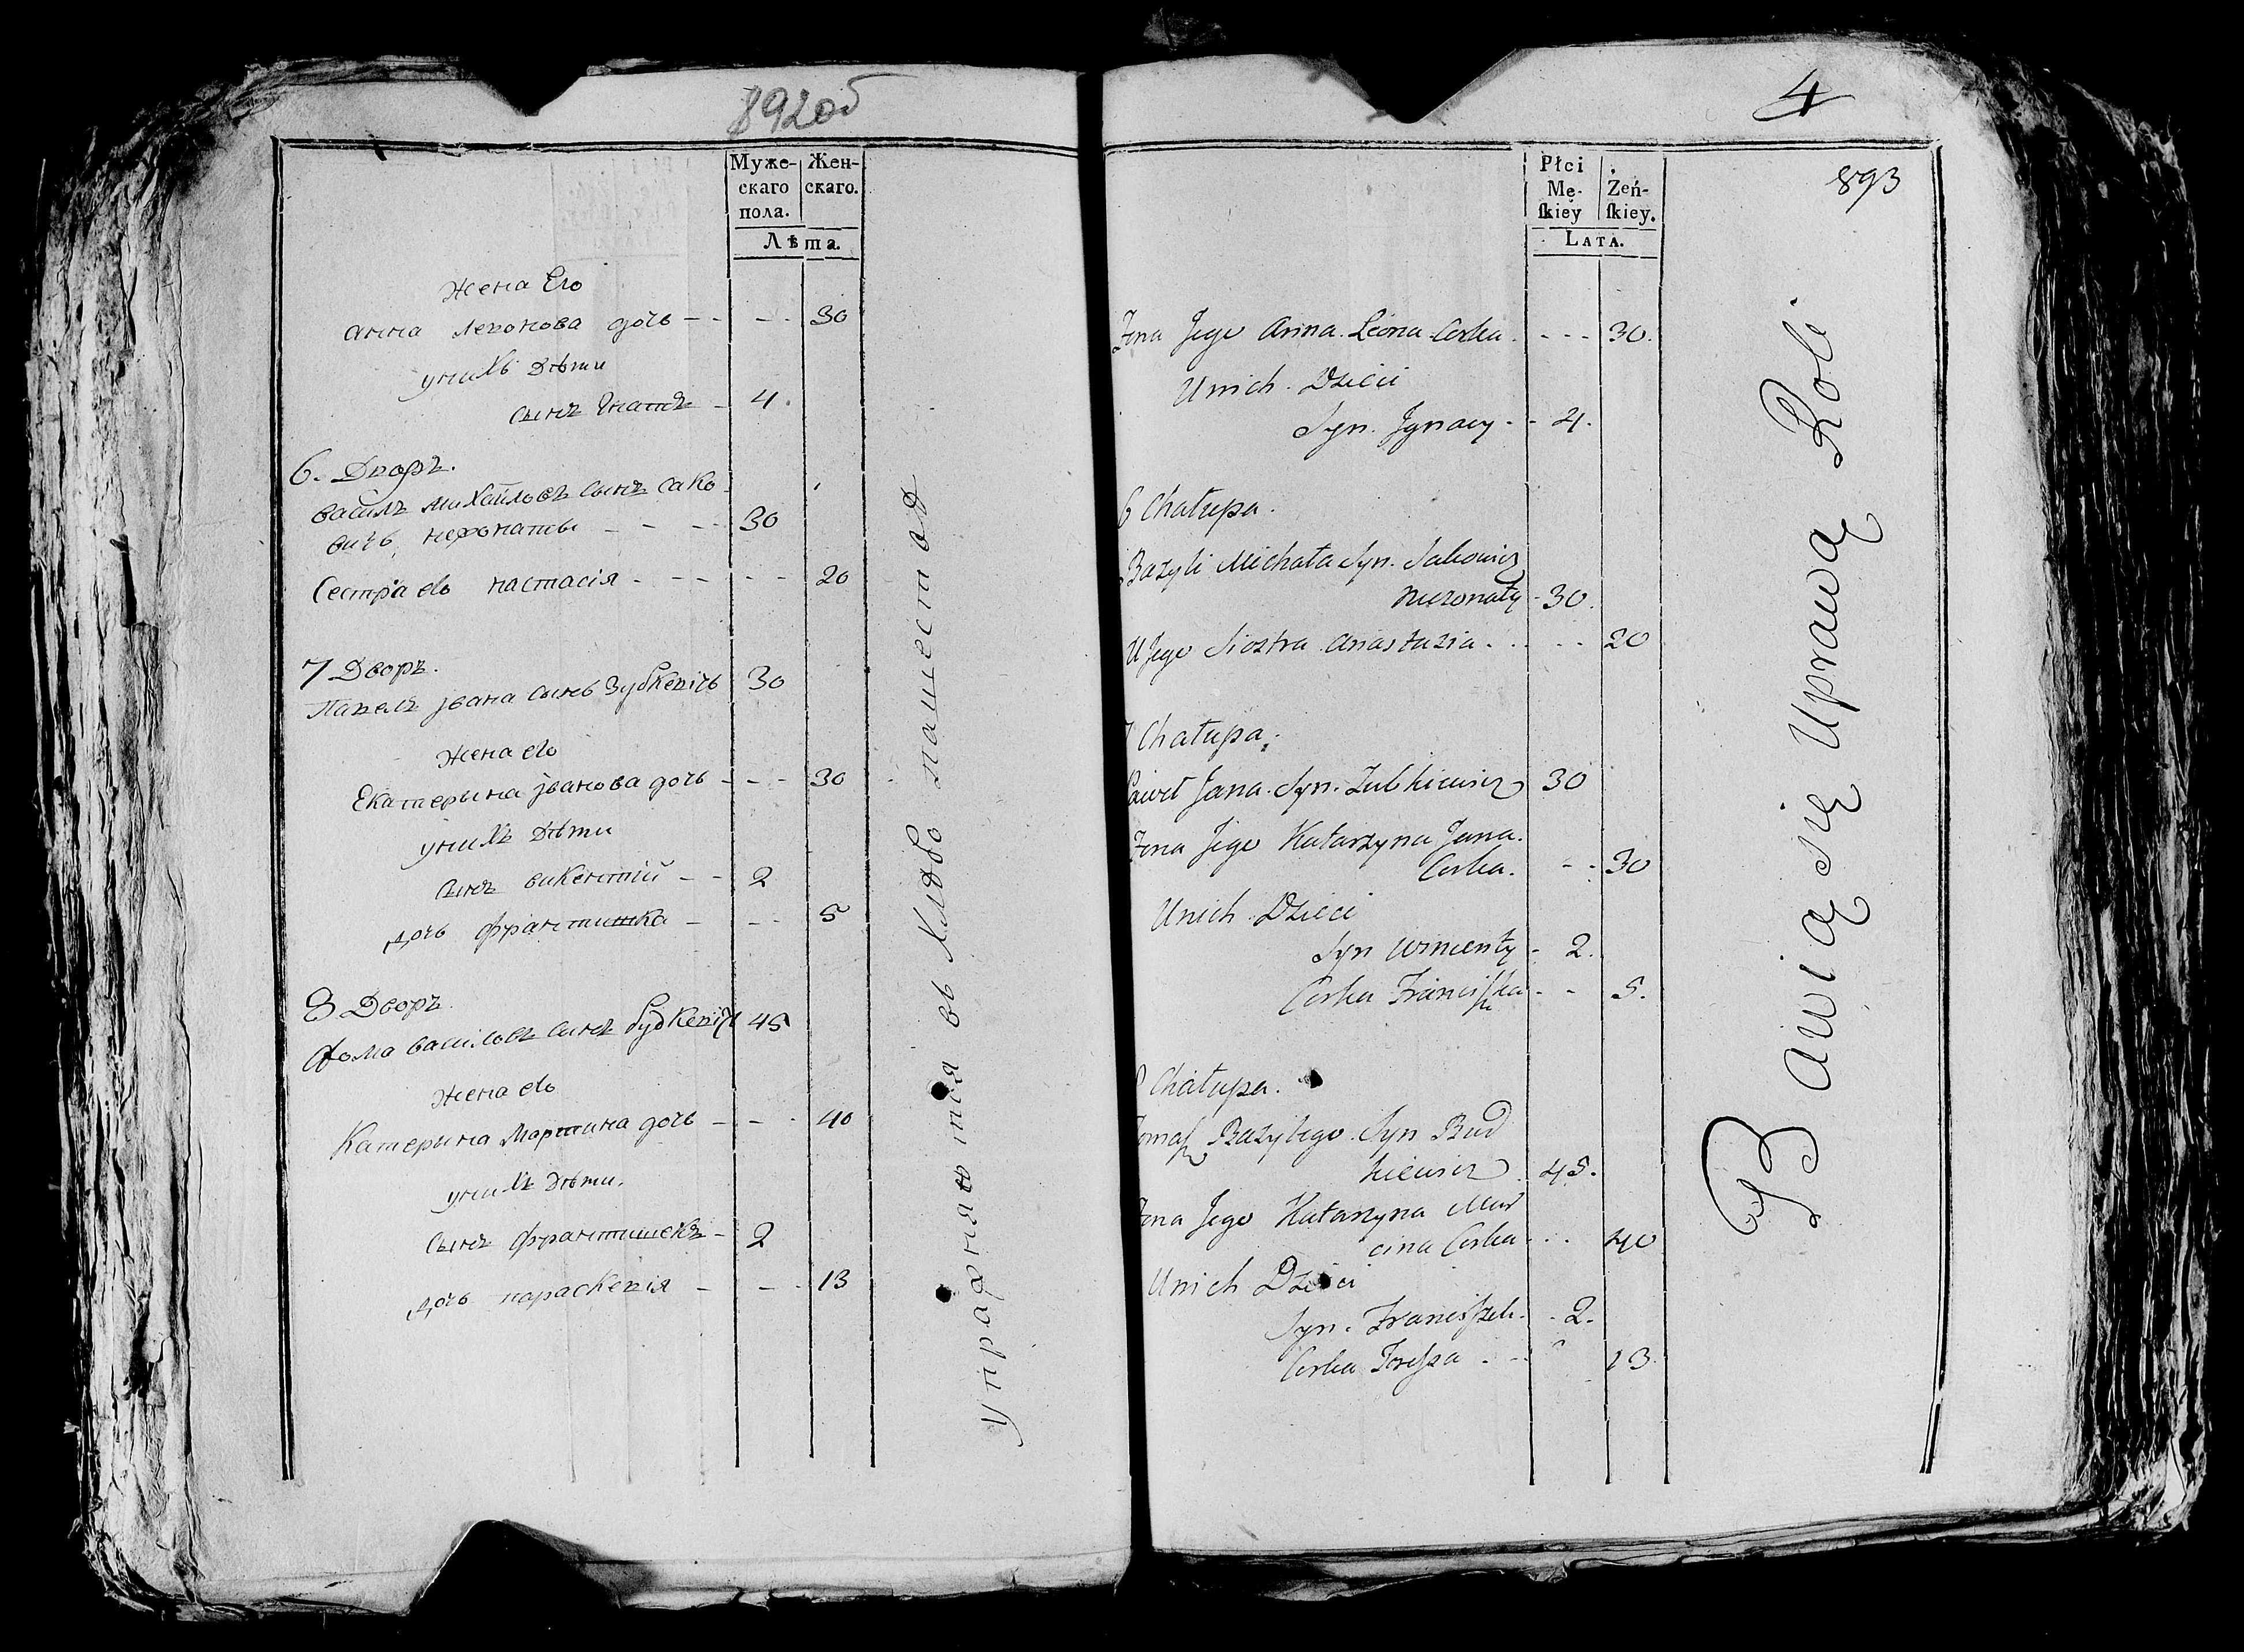 892об
Муже-
скаго
пола.
Жен-
скаго.
Лѣта.
жена Его
анна леконова дочь - - - - 30
унихъ Дѣти
сынъ Игнатъ - 4.
6. Дворъ.
василъ михайловъ сынъ сако
вичъ нежонаты - - - - 30
Сестра его настасія - - - - - 20
7 Дворъ.
Павелъ јвана сынъ Зубкевічъ 30
жена его
Екатерына јванова дочь - - - 30
унихъ Дѣти
сынъ викентій - - 2
дочь франтишка - - - 5
8 Дворъ.
Фома василовъ сынъ будкевічъ 45
жена его
Катерына Мартина дочь - - - 40
унихъ дѣти.
сынъ франтишекъ - 2
дочь параскевія - - - 13
упражняются въ хлѣбо пашествѣ
4
893
Płci
Mę-
skiey
Żeń-
skiey.
LATA.
Żona Jego Anna Leona Corka. - - - 30.
Unich Dzieci
Syn. Jgnacy - - 4.
6 Chałupa.
Bazyli Michała Syn. Sakowicz
Nieżonaty - 30.
U Jego Siostra Anastazia . . . - - 20
7 Chałupa.
Paweł Jana Syn. Zubkiewicz 30
Żona Jego Katarzyna Jana.
Corka. - - 30
Unich Dzieci
Syn Wincenty - 2.
Corka Franciszka - - 5.
8 Chałupa.
Tomasz Bazylego Syn Bud
kiewicz 45.
Żona Jego Katarzyna Mar
cina Corka - . . 40
Unich Dzieci
Syn. Franciszek. - 2.
Corka - - 13.
Bawią się Uprawą Roli